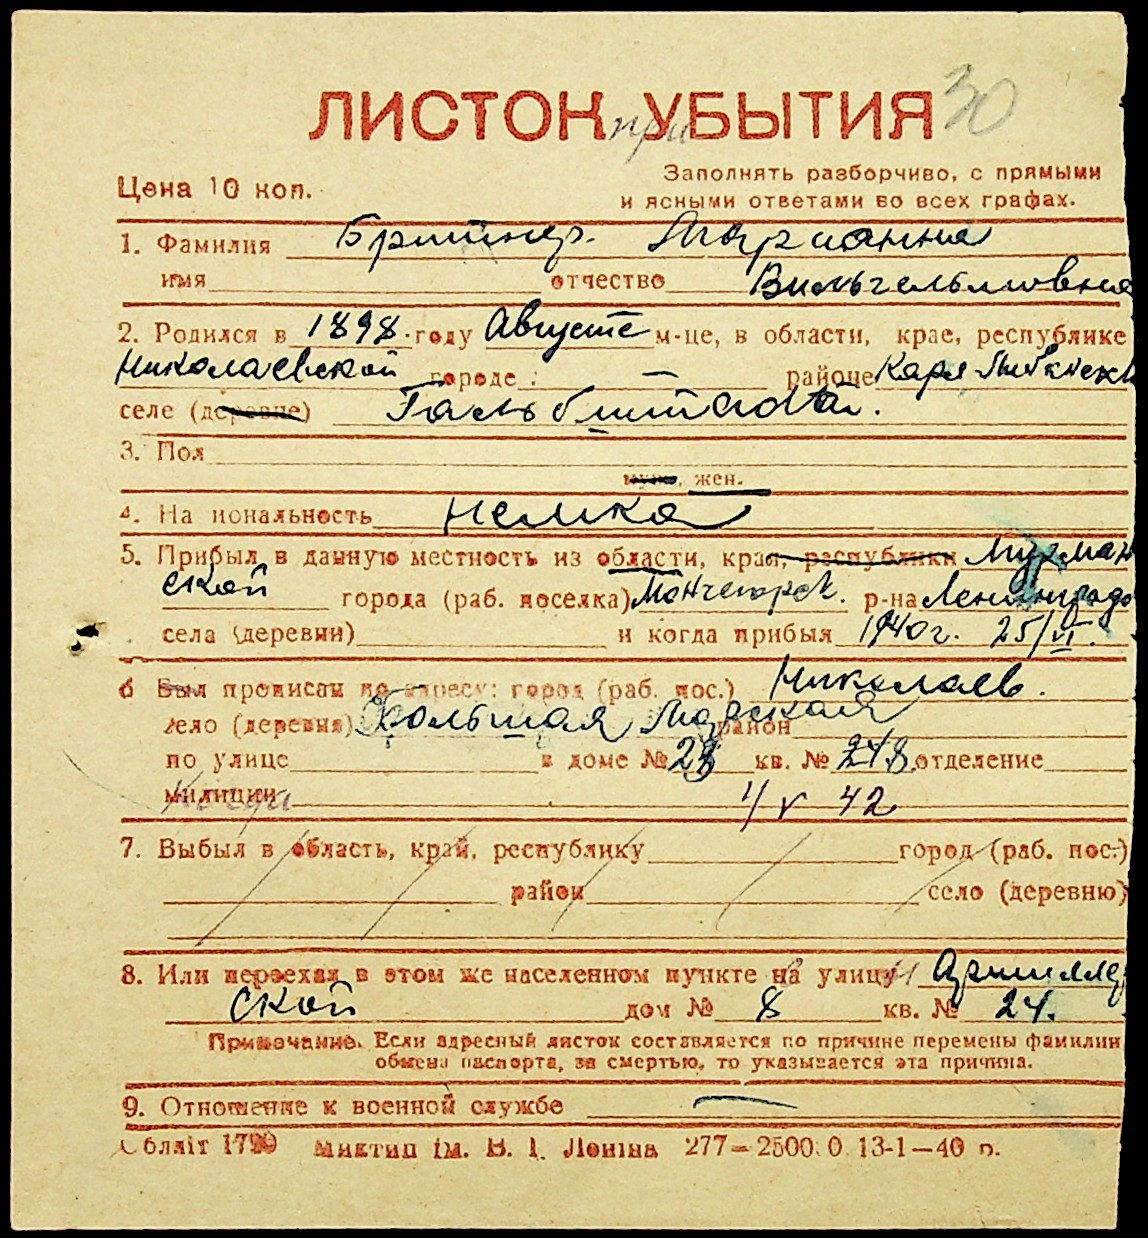 30
ЛИСТОК УБЫТИЯ
при
Цена 10 коп.
Заполнять разборчиво, с прямыми
и ясными ответами во всех графах.
1. Фамилия Бриттнер. Марианна
имя отчество Вильгельмовна
2. Родился в 1898. году Августе м-це, в области, крае, республике
Николаевской городе: — районе Карл Либкнехт
селе (деревне) Гальбштадта.
3. Пол
муж., жен.
4. Национальность немка
5. Прибыл в данную местность из области, края, республики Мурман
ской города (раб. поселка) Мончегорск. р-на Ленинградо
села (деревни) и когда прибыл 1940 г. 25/VI.
6 Был прописан по адресу: город (раб. пос.) Николаев.
село (деревня) Большая Морская район
по улице в доме № 28 кв. № 248 отделение
милиции Когда 1/V 42
7. Выбыл в область, край, республику город (раб. пос.)
район село (деревню)
8. Или переехал в этом же населенном пункте на улицу Артиллер
ской дом № 8 кв. № 24.
Примечание. Если адресный листок составляется по причине перемены фамилии
обмена паспорта, за смертью, то указывается эта причина.
9. Отношение к военной службе —
Облліт 1790 Миктип ім. В. І. Леніна 277—2500.0 13-1—40 р.